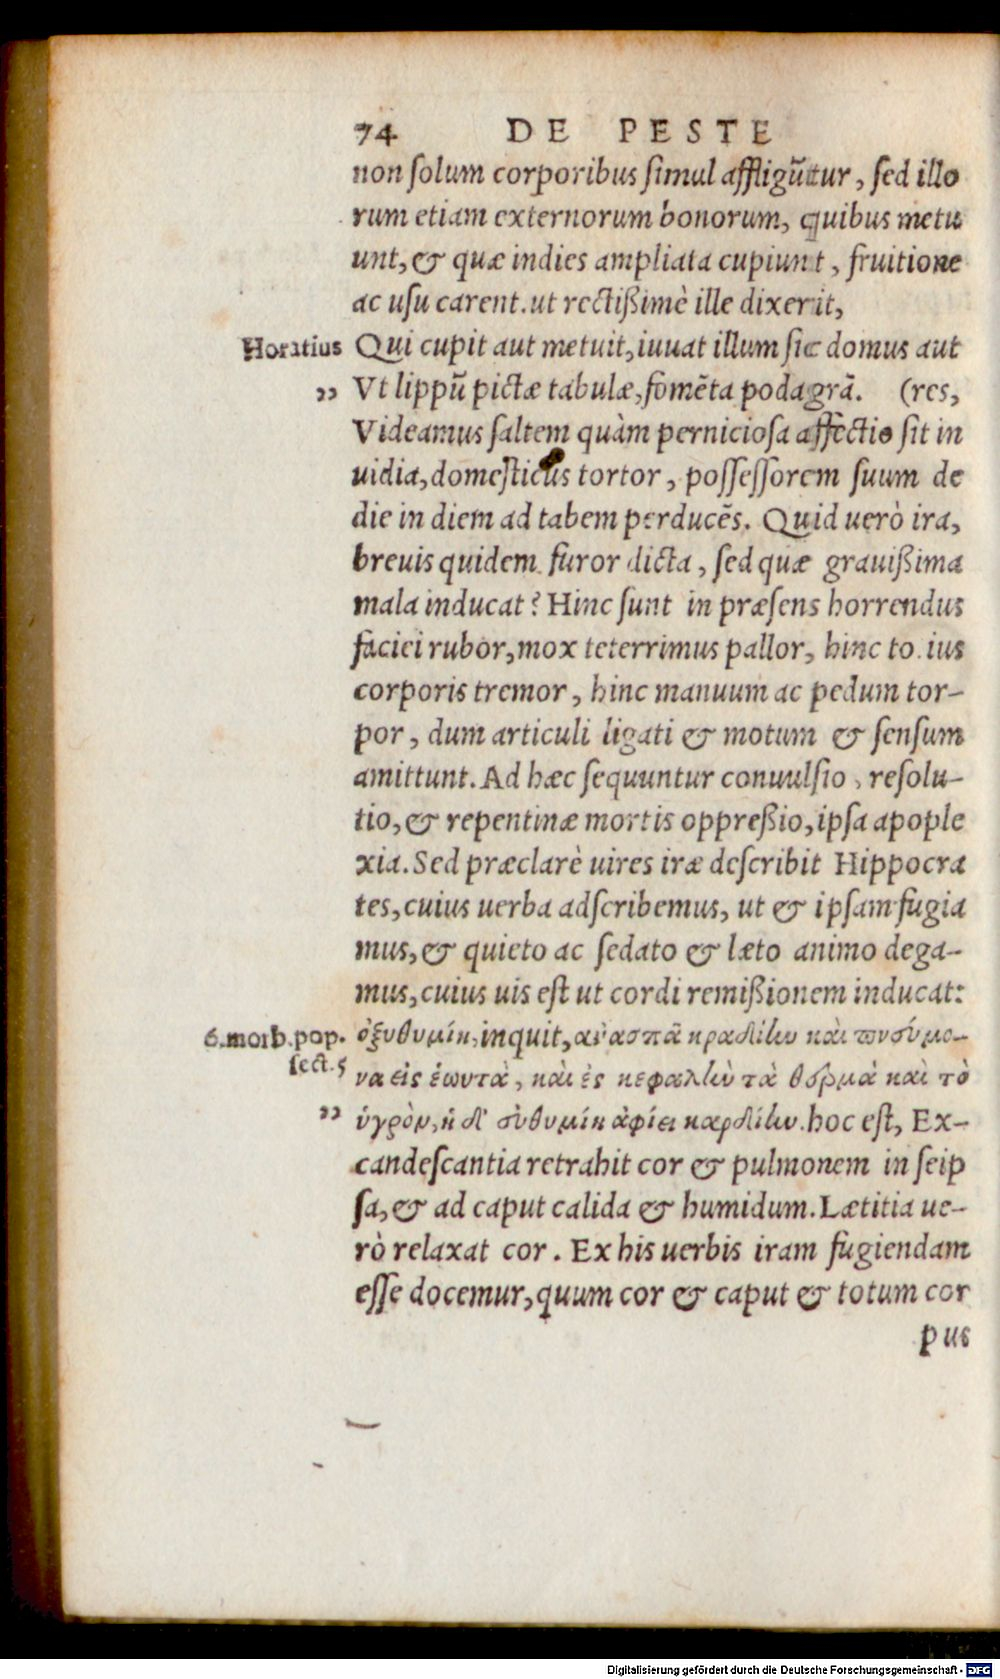 74 DE PESTE
non solum corporibus simul affligũtur, sed illo
rum etiam externorum bonorum, quibus metu
unt, & quæ indies ampliata cupiunt, fruitione
ac usu carent. ut rectißimè ille dixerit,
Horatius Qui cupit aut metuit, iuuat illum sic domus aut
„ Vt lippũ pictæ tabulæ, fomẽta podagrã. (res,
Videamus saltem quàm perniciosa affectio sit in
uidia, domesticus tortor, possessorem suum de
die in diem ad tabem perducẽs. Quid uerò ira,
breuis quidem furor dicta, sed quæ grauißima
mala inducat? Hinc sunt in præsens horrendus
faciei rubor, mox teterrimus pallor, hinc to ius
corporis tremor, hinc manuum ac pedum tor-
por, dum articuli ligati & motum & sensum
amittunt. Ad hæc sequuntur conuulsio, resolu-
tio, & repentinæ mortis oppreßio, ipsa apople
xia. Sed præclarè uires iræ describit Hippocra
tes, cuius uerba adscribemus, ut & ipsam fugia
mus, & quieto ac sedato & læto animo dega-
mus, cuius uis est ut cordi remißionem inducat:
6. morb. pop. ὀξυθυμίη, inquit, ἀνασπᾶ κραδίην καὶ πνεύμο-
sect. 5 να εἰς ἑωυτὰ, καὶ ἐς κεφαλὴν τὰ θερμὰ καὶ τὸ
„ ὑγρὸν, ἡ δ' εὐθυμίη ἀφίει καρδίην. hoc est, Ex-
candescantia retrahit cor & pulmonem in seip
sa, & ad caput calida & humidum. Lætitia ue-
rò relaxat cor. Ex his uerbis iram fugiendam
esse docemur, quum cor & caput & totum cor
pus
Digitalisierung gefördert durch die Deutsche Forschungsgemeinschaft - DFG